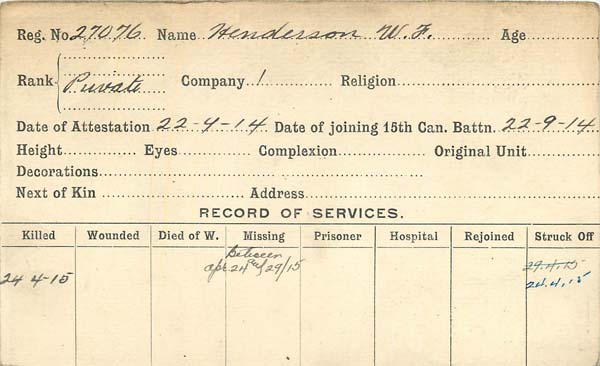 Reg. No 27076 Name Henderson W. F. Age
Rank Private Company 1 Religion
Date of Attestation 22-9-14 Date of joining 15th Can. Battn. 22-9-14
Height Eyes Complexion Original Unit
Decorations
Next of Kin Address
RECORD OF SERVICES.
Killed Wounded Died of W. Missing Prisoner Hospital Rejoined Struck Off
Between
24 4-15 apl 24th 29/15 29.4.15
24.4.15